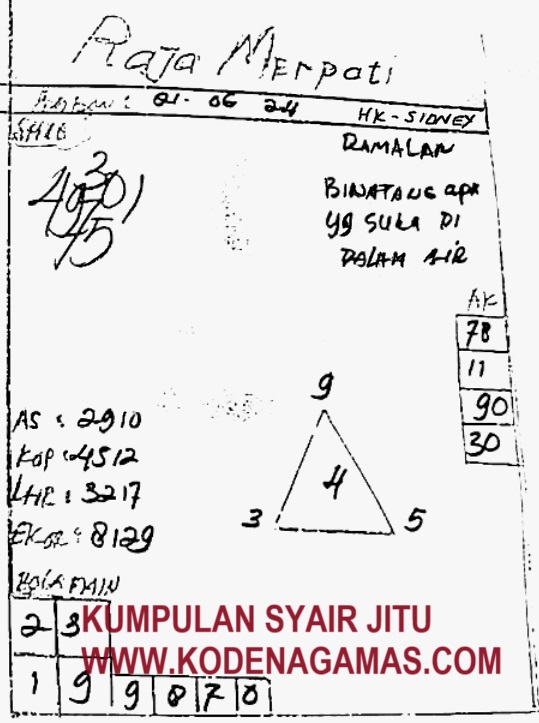 Raja Merpati
01-06 24
HK-SIDNEY
RAMALAN
BINATANG apa
yg SUKA DI
DALAM AIR
AK
78
11
90
30
9
4
3 5
AS : 2910
KOP : 4512
: 3217
EKOR : 8129
MAIN
2 3
1 9 9 8 7 0
KUMPULAN SYAIR JITU
WWW.KODENAGAMAS.COM